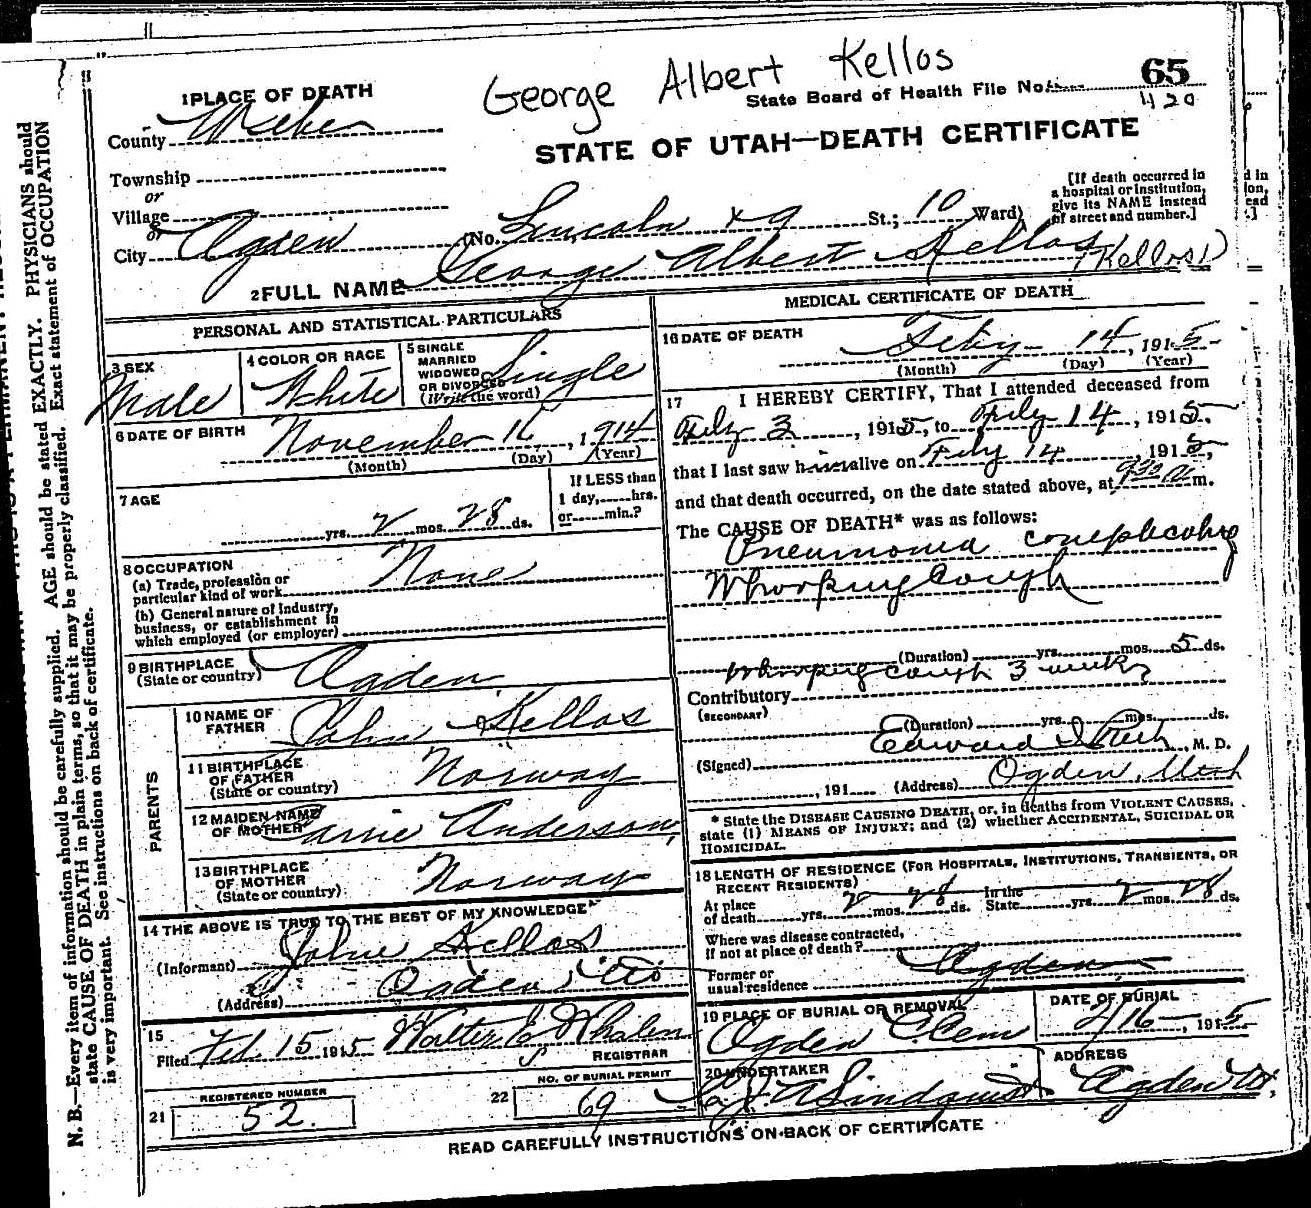 George Albert Kellos
State Board of Health File No. 65
420
STATE OF UTAH—DEATH CERTIFICATE
1 PLACE OF DEATH
County Weber
Township
or
Village
or
City Ogden (No. Lincoln & 9 St.; 10 Ward)
[If death occurred in
a hospital or institution,
give its NAME instead
of street and number.]
2 FULL NAME George Albert Kellos (Kellos)
PERSONAL AND STATISTICAL PARTICULARS
3 SEX
Male
4 COLOR OR RACE
White
5 SINGLE
MARRIED
WIDOWED
OR DIVORCED
(Write the word)
Single
6 DATE OF BIRTH
November 16, 1914
(Month) (Day) (Year)
7 AGE
yrs. 2 mos. 28 ds.
If LESS than
1 day, hrs.
or min.?
8 OCCUPATION
(a) Trade, profession or
particular kind of work None
(b) General nature of industry,
business, or establishment in
which employed (or employer)
9 BIRTHPLACE
(State or country) Ogden
PARENTS
10 NAME OF
FATHER John Kellos
11 BIRTHPLACE
OF FATHER
(State or country) Norway
12 MAIDEN NAME
OF MOTHER Carrie Anderson
13 BIRTHPLACE
OF MOTHER
(State or country) Norway
14 THE ABOVE IS TRUE TO THE BEST OF MY KNOWLEDGE
(Informant) John Kellos
(Address) Ogden
15
Filed Feb. 15 1915 Walter E Whalen
REGISTRAR
21 REGISTERED NUMBER
52.
22 NO. OF BURIAL PERMIT
69
MEDICAL CERTIFICATE OF DEATH
16 DATE OF DEATH
Feby 14, 1915
(Month) (Day) (Year)
17 I HEREBY CERTIFY, That I attended deceased from
Feby 3, 1915, to Feby 14, 1915,
that I last saw him alive on Feby 14, 1915,
and that death occurred, on the date stated above, at 9 30 a m.
The CAUSE OF DEATH* was as follows:
Pneumonia complicating
Whooping Cough
(Duration) yrs. mos. 5 ds.
Whooping cough 3 weeks
Contributory
(SECONDARY)
(Duration) yrs. mos. ds.
(Signed) Edward I Rich, M. D.
, 191 (Address) Ogden, Utah
* State the DISEASE CAUSING DEATH, or, in deaths from VIOLENT CAUSES,
state (1) MEANS OF INJURY; and (2) whether ACCIDENTAL, SUICIDAL OR
HOMICIDAL.
18 LENGTH OF RESIDENCE (FOR HOSPITALS, INSTITUTIONS, TRANSIENTS, OR
RECENT RESIDENTS)
At place
of death yrs. 2 mos. 28 ds. In the
State yrs. 2 mos. 28 ds.
Where was disease contracted,
if not at place of death?
Former or
usual residence Ogden
19 PLACE OF BURIAL OR REMOVAL
Ogden Cem
DATE OF BURIAL
2/16, 1915
20 UNDERTAKER
Lindquist
ADDRESS
Ogden Ut,
READ CAREFULLY INSTRUCTIONS ON BACK OF CERTIFICATE
N. B.—Every item of information should be carefully supplied. AGE should be stated EXACTLY. PHYSICIANS should
state CAUSE OF DEATH in plain terms, so that it may be properly classified. Exact statement of OCCUPATION
is very important. See instructions on back of certificate.